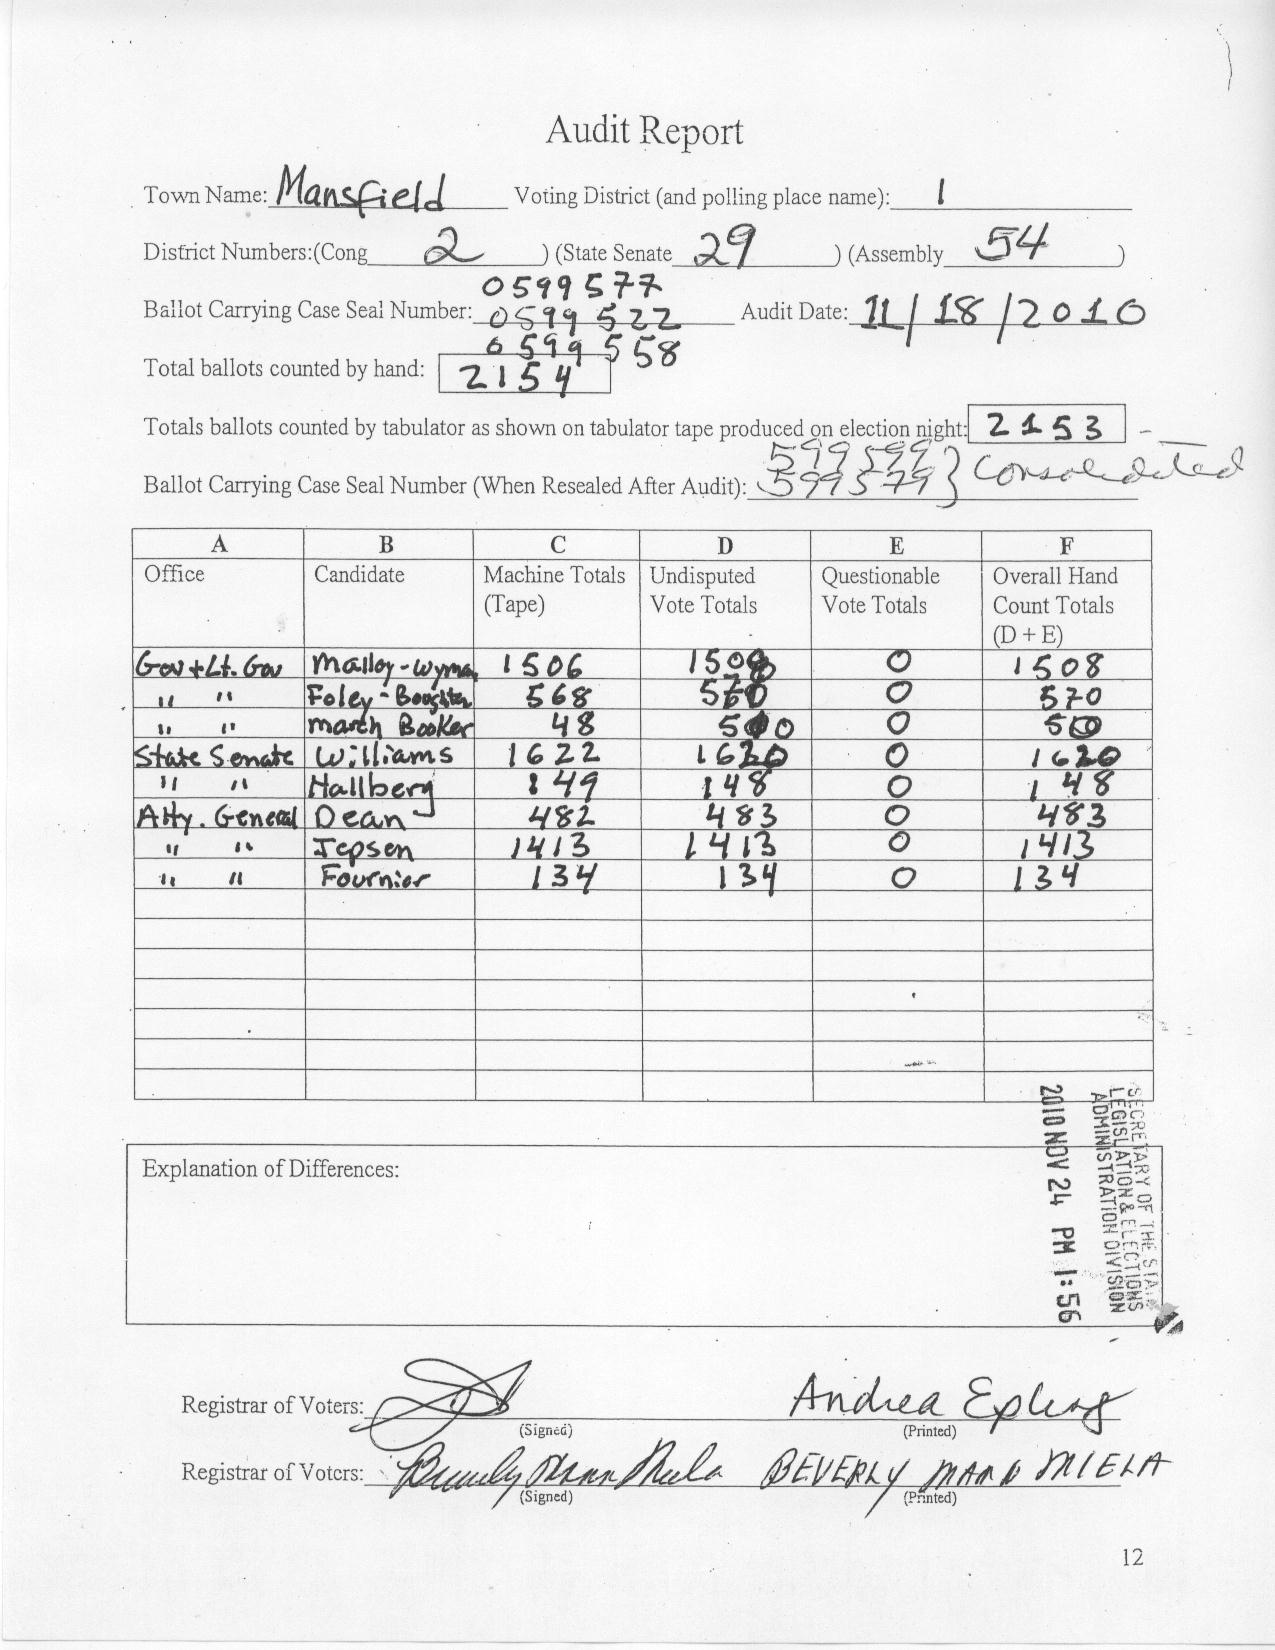 Audit Report
Town Name: Mansfield Voting District (and polling place name): 1
District Numbers:(Cong 2 ) (State Senate 29 ) (Assembly 54 )
0599577
Ballot Carrying Case Seal Number: 0599522 Audit Date: 11/18/2010
0599558
Total ballots counted by hand: 2154
Totals ballots counted by tabulator as shown on tabulator tape produced on election night: 2153 -
599599 } Consolidated
Ballot Carrying Case Seal Number (When Resealed After Audit): 599579
A B C D E F
Office Candidate Machine Totals (Tape) Undisputed Vote Totals Questionable Vote Totals Overall Hand Count Totals (D + E)
Gov + Lt. Gov Malloy-Wyman 1506 1508 0 1508
" " Foley-Boughton 568 570 0 570
" " March Booker 48 0 50
State Senate Williams 1622 1620 0 1620
" " Hallberg 149 148 0 148
Atty. General Dean 482 483 0 483
" " Jepsen 1413 1413 0 1413
" " Fournier 134 134 0 134
Explanation of Differences:
SECRETARY OF THE STATE
LEGISLATION & ELECTIONS
ADMINISTRATION DIVISION
2010 NOV 24 PM 1:56
Registrar of Voters: Andrea Epling
(Signed) (Printed)
Registrar of Voters: Beverly Mann Miela BEVERLY MANN MIELA
(Signed) (Printed)
12